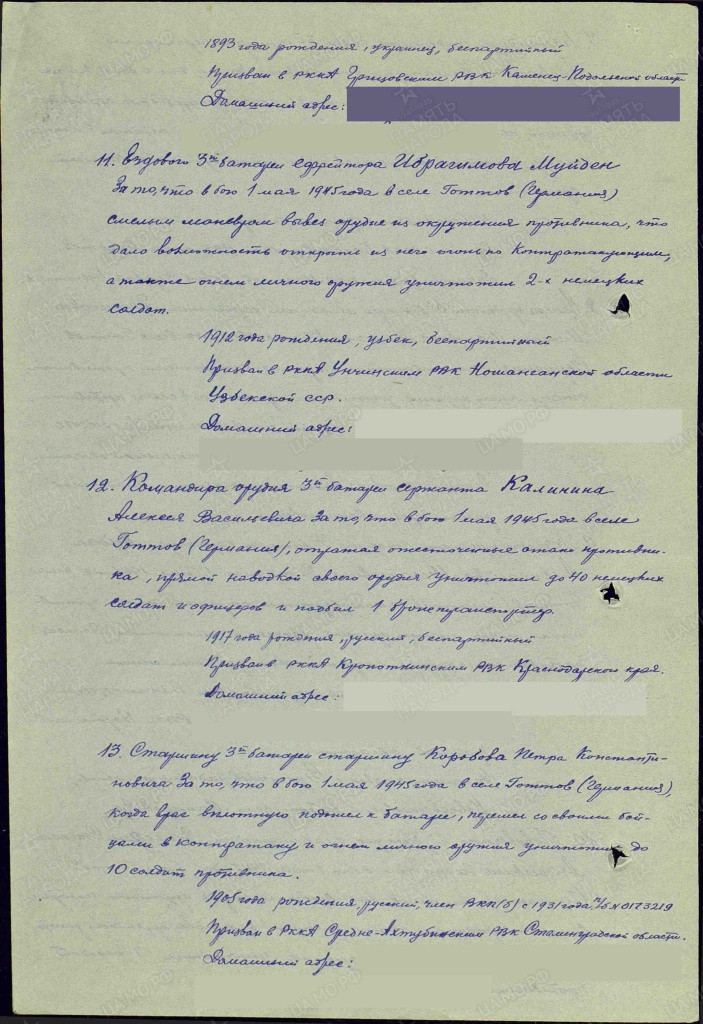 1893 года рождения, украинец, беспартийный
Призван в РККА Грицовским РВК Каменец-Подольской области
Домашний адрес:
11. Ездового 3й батареи ефрейтора Ибрагимова Муйден
За то, что в бою 1 мая 1945 года в селе Готтов (Германия)
смелым маневром вывез орудие из окружения противника, что
дало возможность открыть из него огонь по контратакующим,
а также огнем личного оружия уничтожил 2-х немецких
солдат.
1912 года рождения, узбек, беспартийный
Призван в РККА Унчинским РВК Номанганской области
Узбекской сср.
Домашний адрес:
12. Командира орудия 3й батареи сержанта Калинина
Алексея Васильевича За то, что в бою 1 мая 1945 года в селе
Готтов (Германия), отражая ожесточенные атаки противни-
ка, прямой наводкой своего орудия уничтожил до 40 немецких
солдат и офицеров и подбил 1 бронетранспортер.
1917 года рождения, русский, беспартийный
Призван в РККА Кропоткинским РВК Краснодарского края.
Домашний адрес:
13. Старшину 3й батареи старшину Коробова Петра Константи-
новича За то, что в бою 1 мая 1945 года в селе Готтов (Германия),
когда враг вплотную подошел к батарее, перешел со своими бой-
цами в контратаку и огнем личного оружия уничтожил до
10 солдат противника.
1905 года рождения, русский, член ВКП(б) с 1931 года, п/б № 0173219
Призван в РККА Средне-Ахтубинским РВК Сталинградской области.
Домашний адрес: